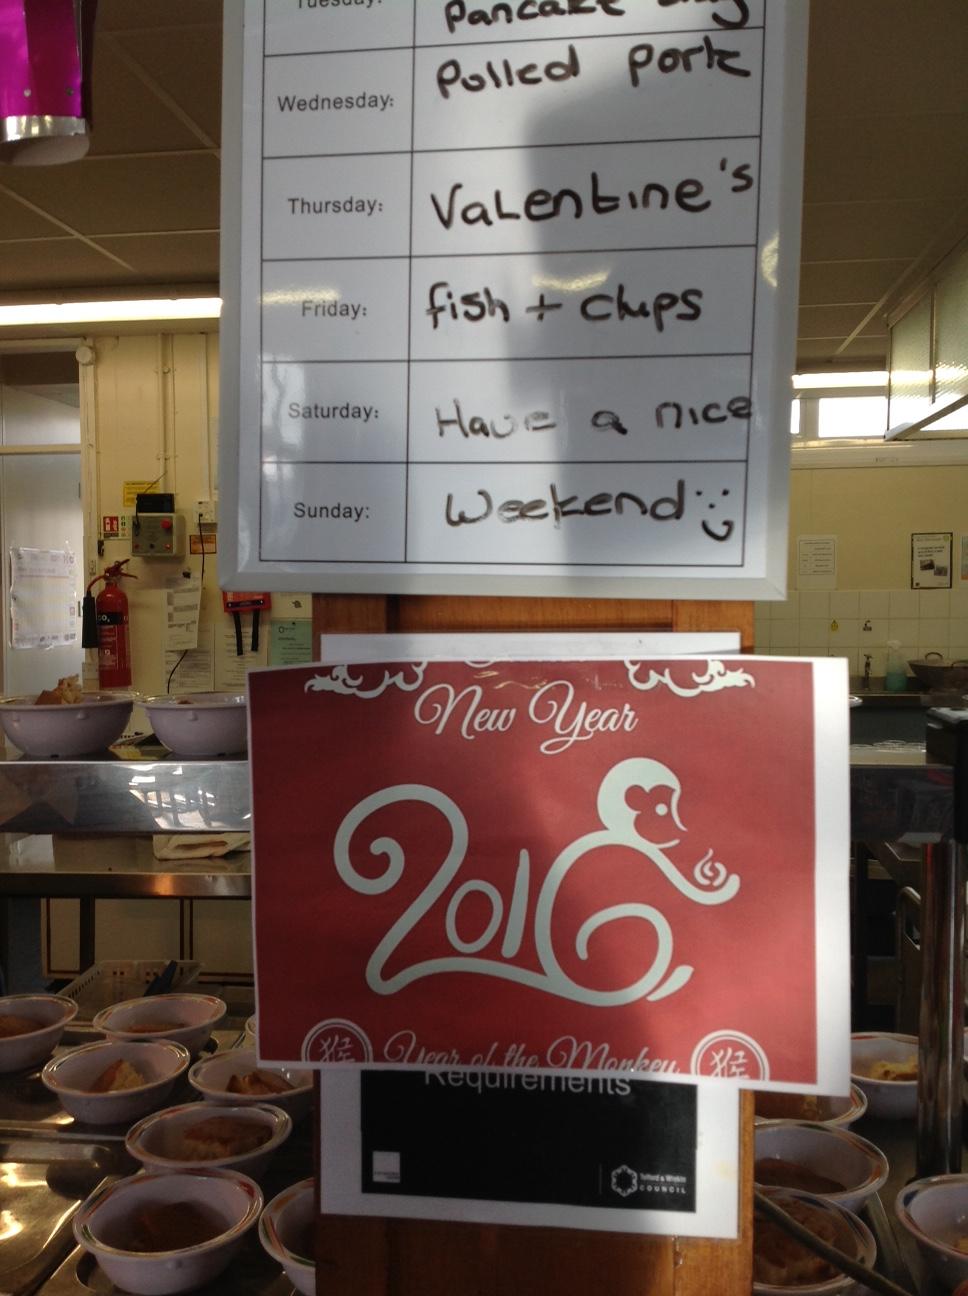 Tuesday:
Pancake Day
Wednesday:
Polled Pork
Thursday:
Valentine's
Friday:
fish + chips
Saturday:
Have a nice
Sunday:
Weekend :)
New Year
2016
猴 Year of the Monkey 猴
Requirements
Telford & Wrekin
COUNCIL